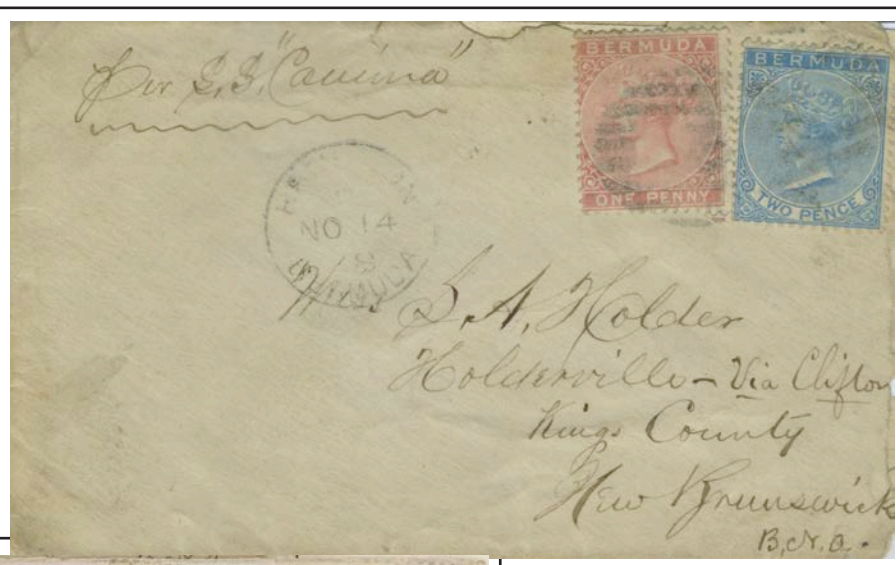 Per S.S. "Canima"
BERMUDA
ONE PENNY
BERMUDA
TWO PENCE
NO 14
BERMUDA
S. A. Holder
Holderville - Via Clifton
Kings County
New Brunswick
B.N.A.